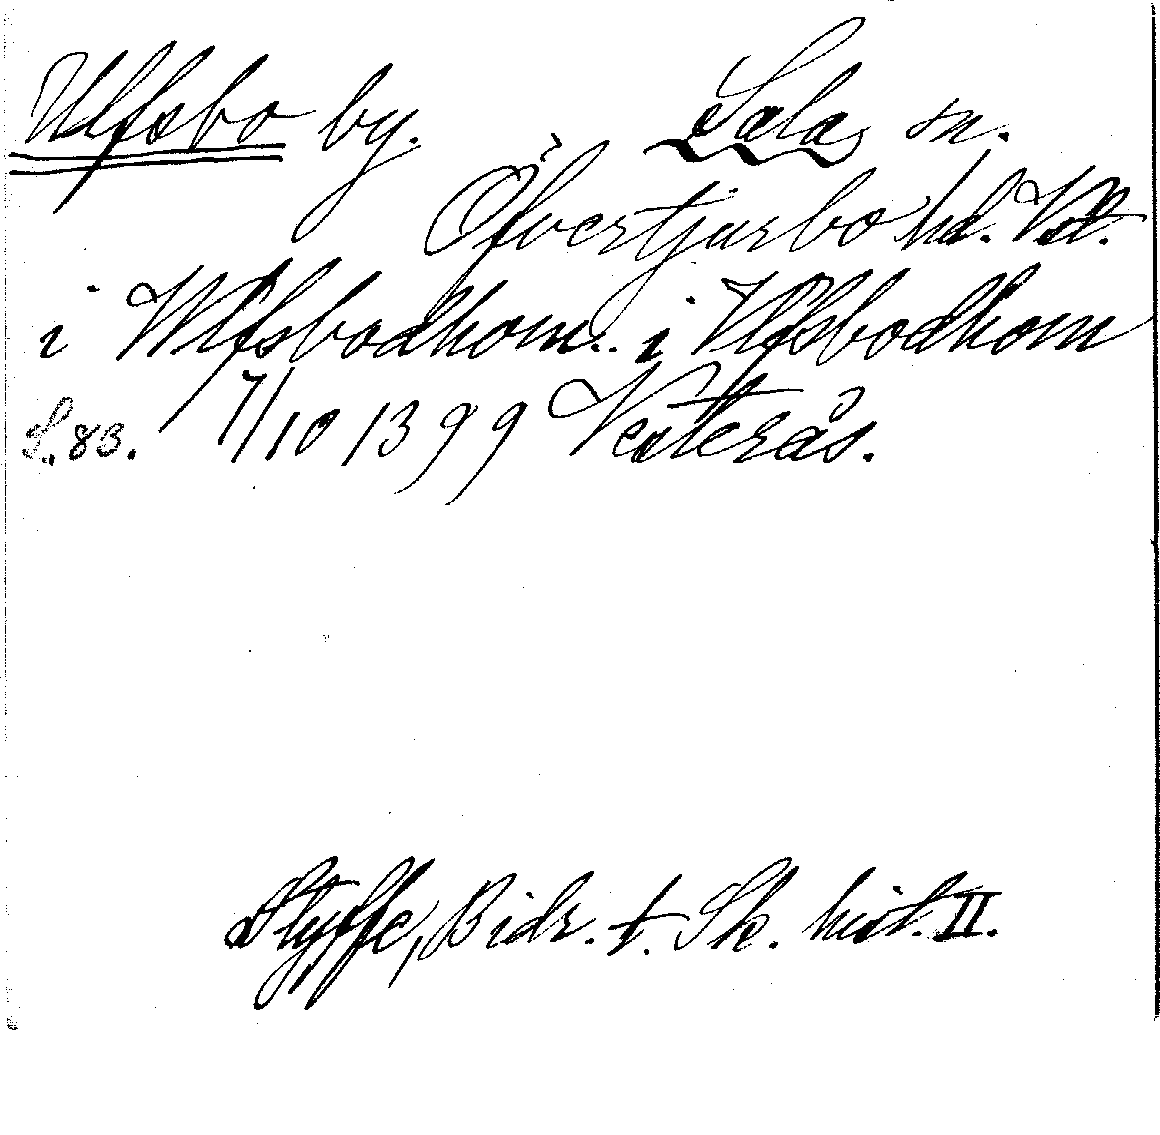 Ulfsbo by. Sala sn.
Öfvertjurbo hd. Vstl.
i Wlfsbodhom. i Vlfsbodhom
S. 83. 7/10 1399 Vesterås.
Styffe, Bidr. t. Sk. hist. II.